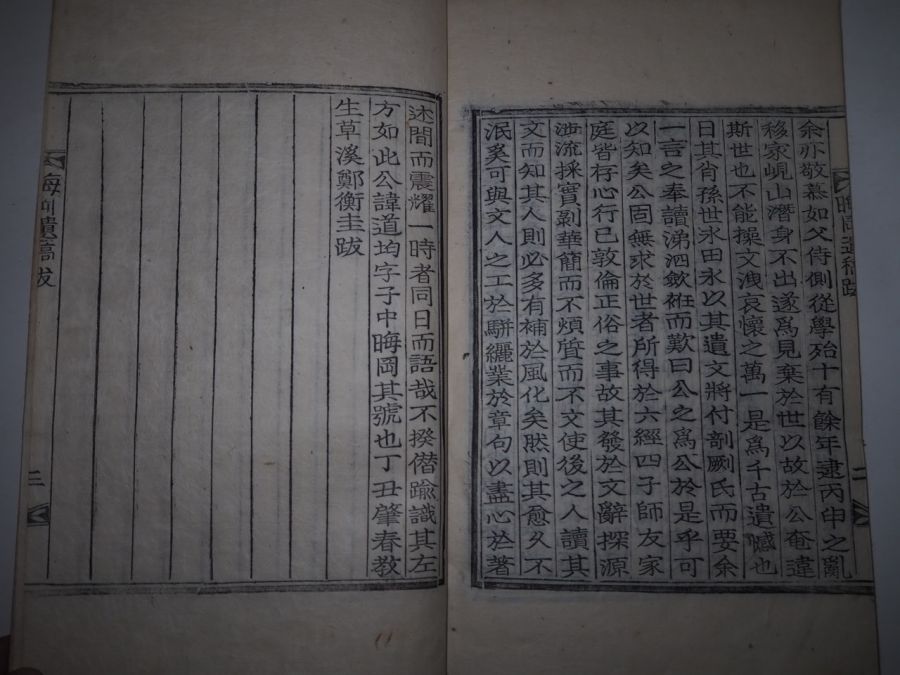 晦岡遺稿跋
二
余亦敬慕如父侍側從學殆十有餘年逮丙申之亂
移家峴山潛身不出遂爲見棄於世以故於公奄違
斯世也不能操文洩哀懷之萬一是爲千古遺憾也
日其肖孫世永田永以其遺文將付剖劂氏而要余
一言之奉讀涕泗歛袵而歎曰公之爲公於是乎可
以知矣公固無求於世者所得於六經四子師友家
庭皆存心行已敦倫正俗之事故其發於文辭探源
流採實剶華簡而不煩質而不文使後之人讀其
文而知其人則必多有補於風化矣然則其愈久不
泯奚可與文人之工於騈儷業於章句以盡心於著
述聞而震耀一時者同日而語哉不揆僭踰識其左
方如此公諱道均字子中晦岡其號也丁丑肇春敎
生草溪鄭衡圭跋
晦岡遺稿跋
三